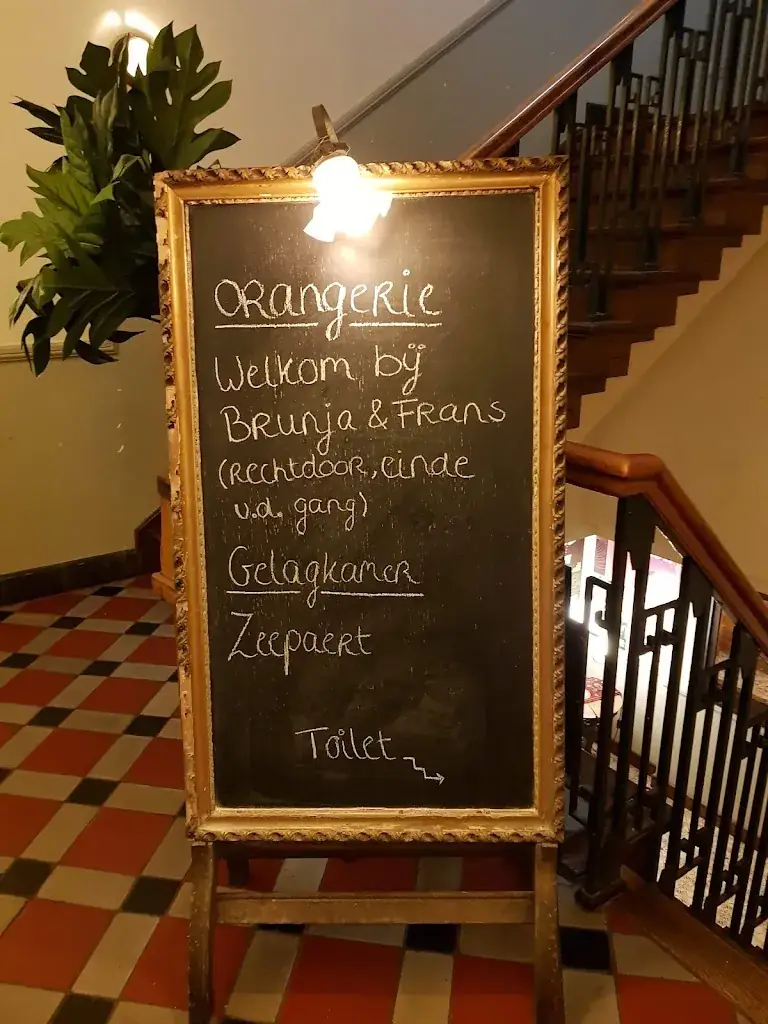 Orangerie
Welkom bij
Brunja & Frans
(Rechtdoor, einde
v.d. gang)
Gelagkamer
Zeepaert
Toilet